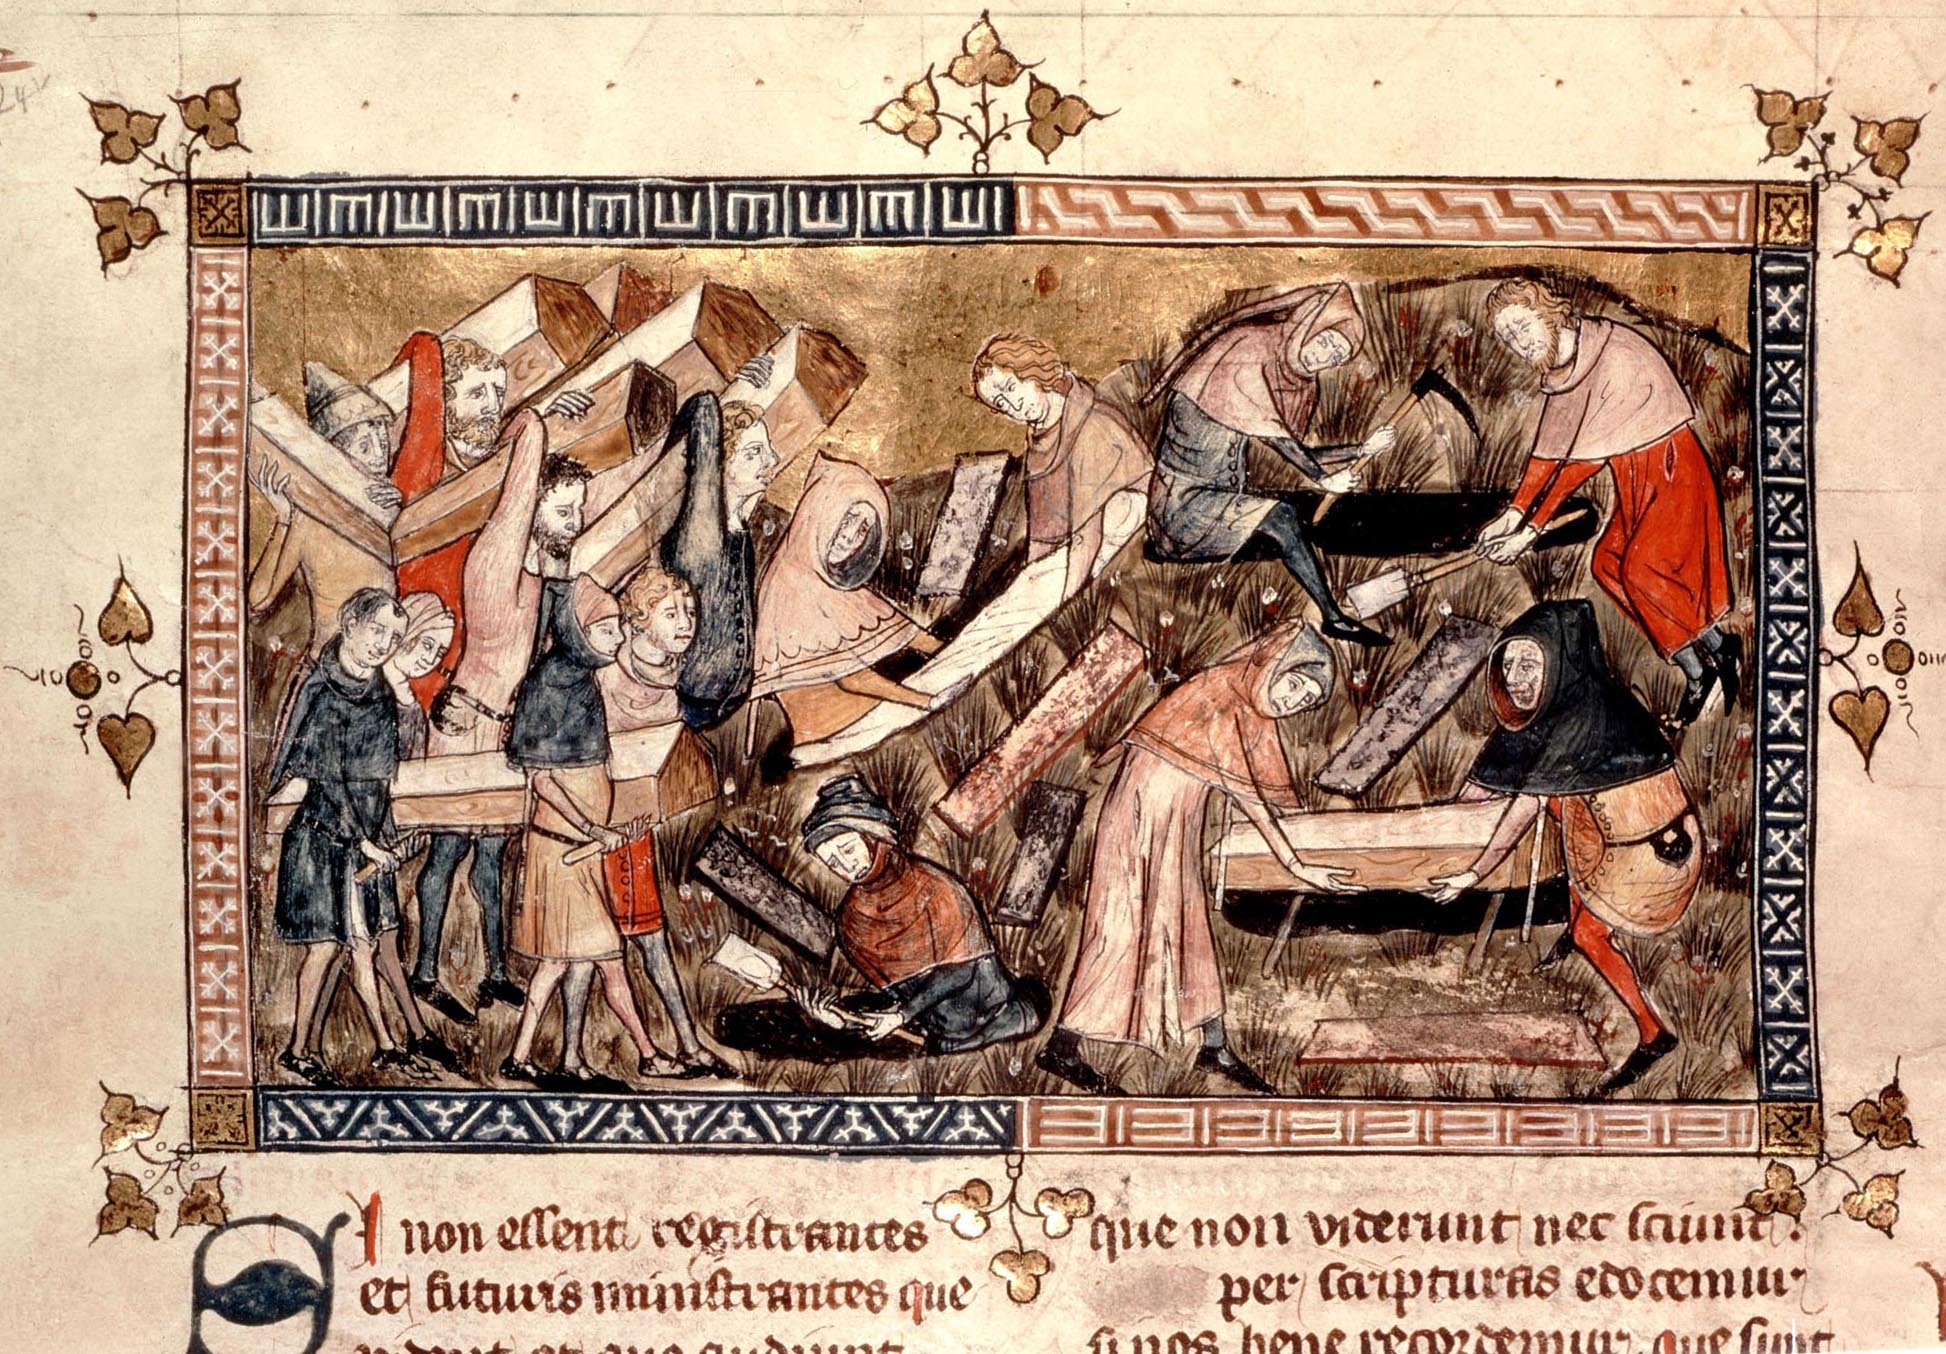 Si non essent registrantes
et futuris ministrantes que
vident et que audiunt
que non viderunt nec sciunt.
per scripturas edocemur
si nos bene recordemur que sunt